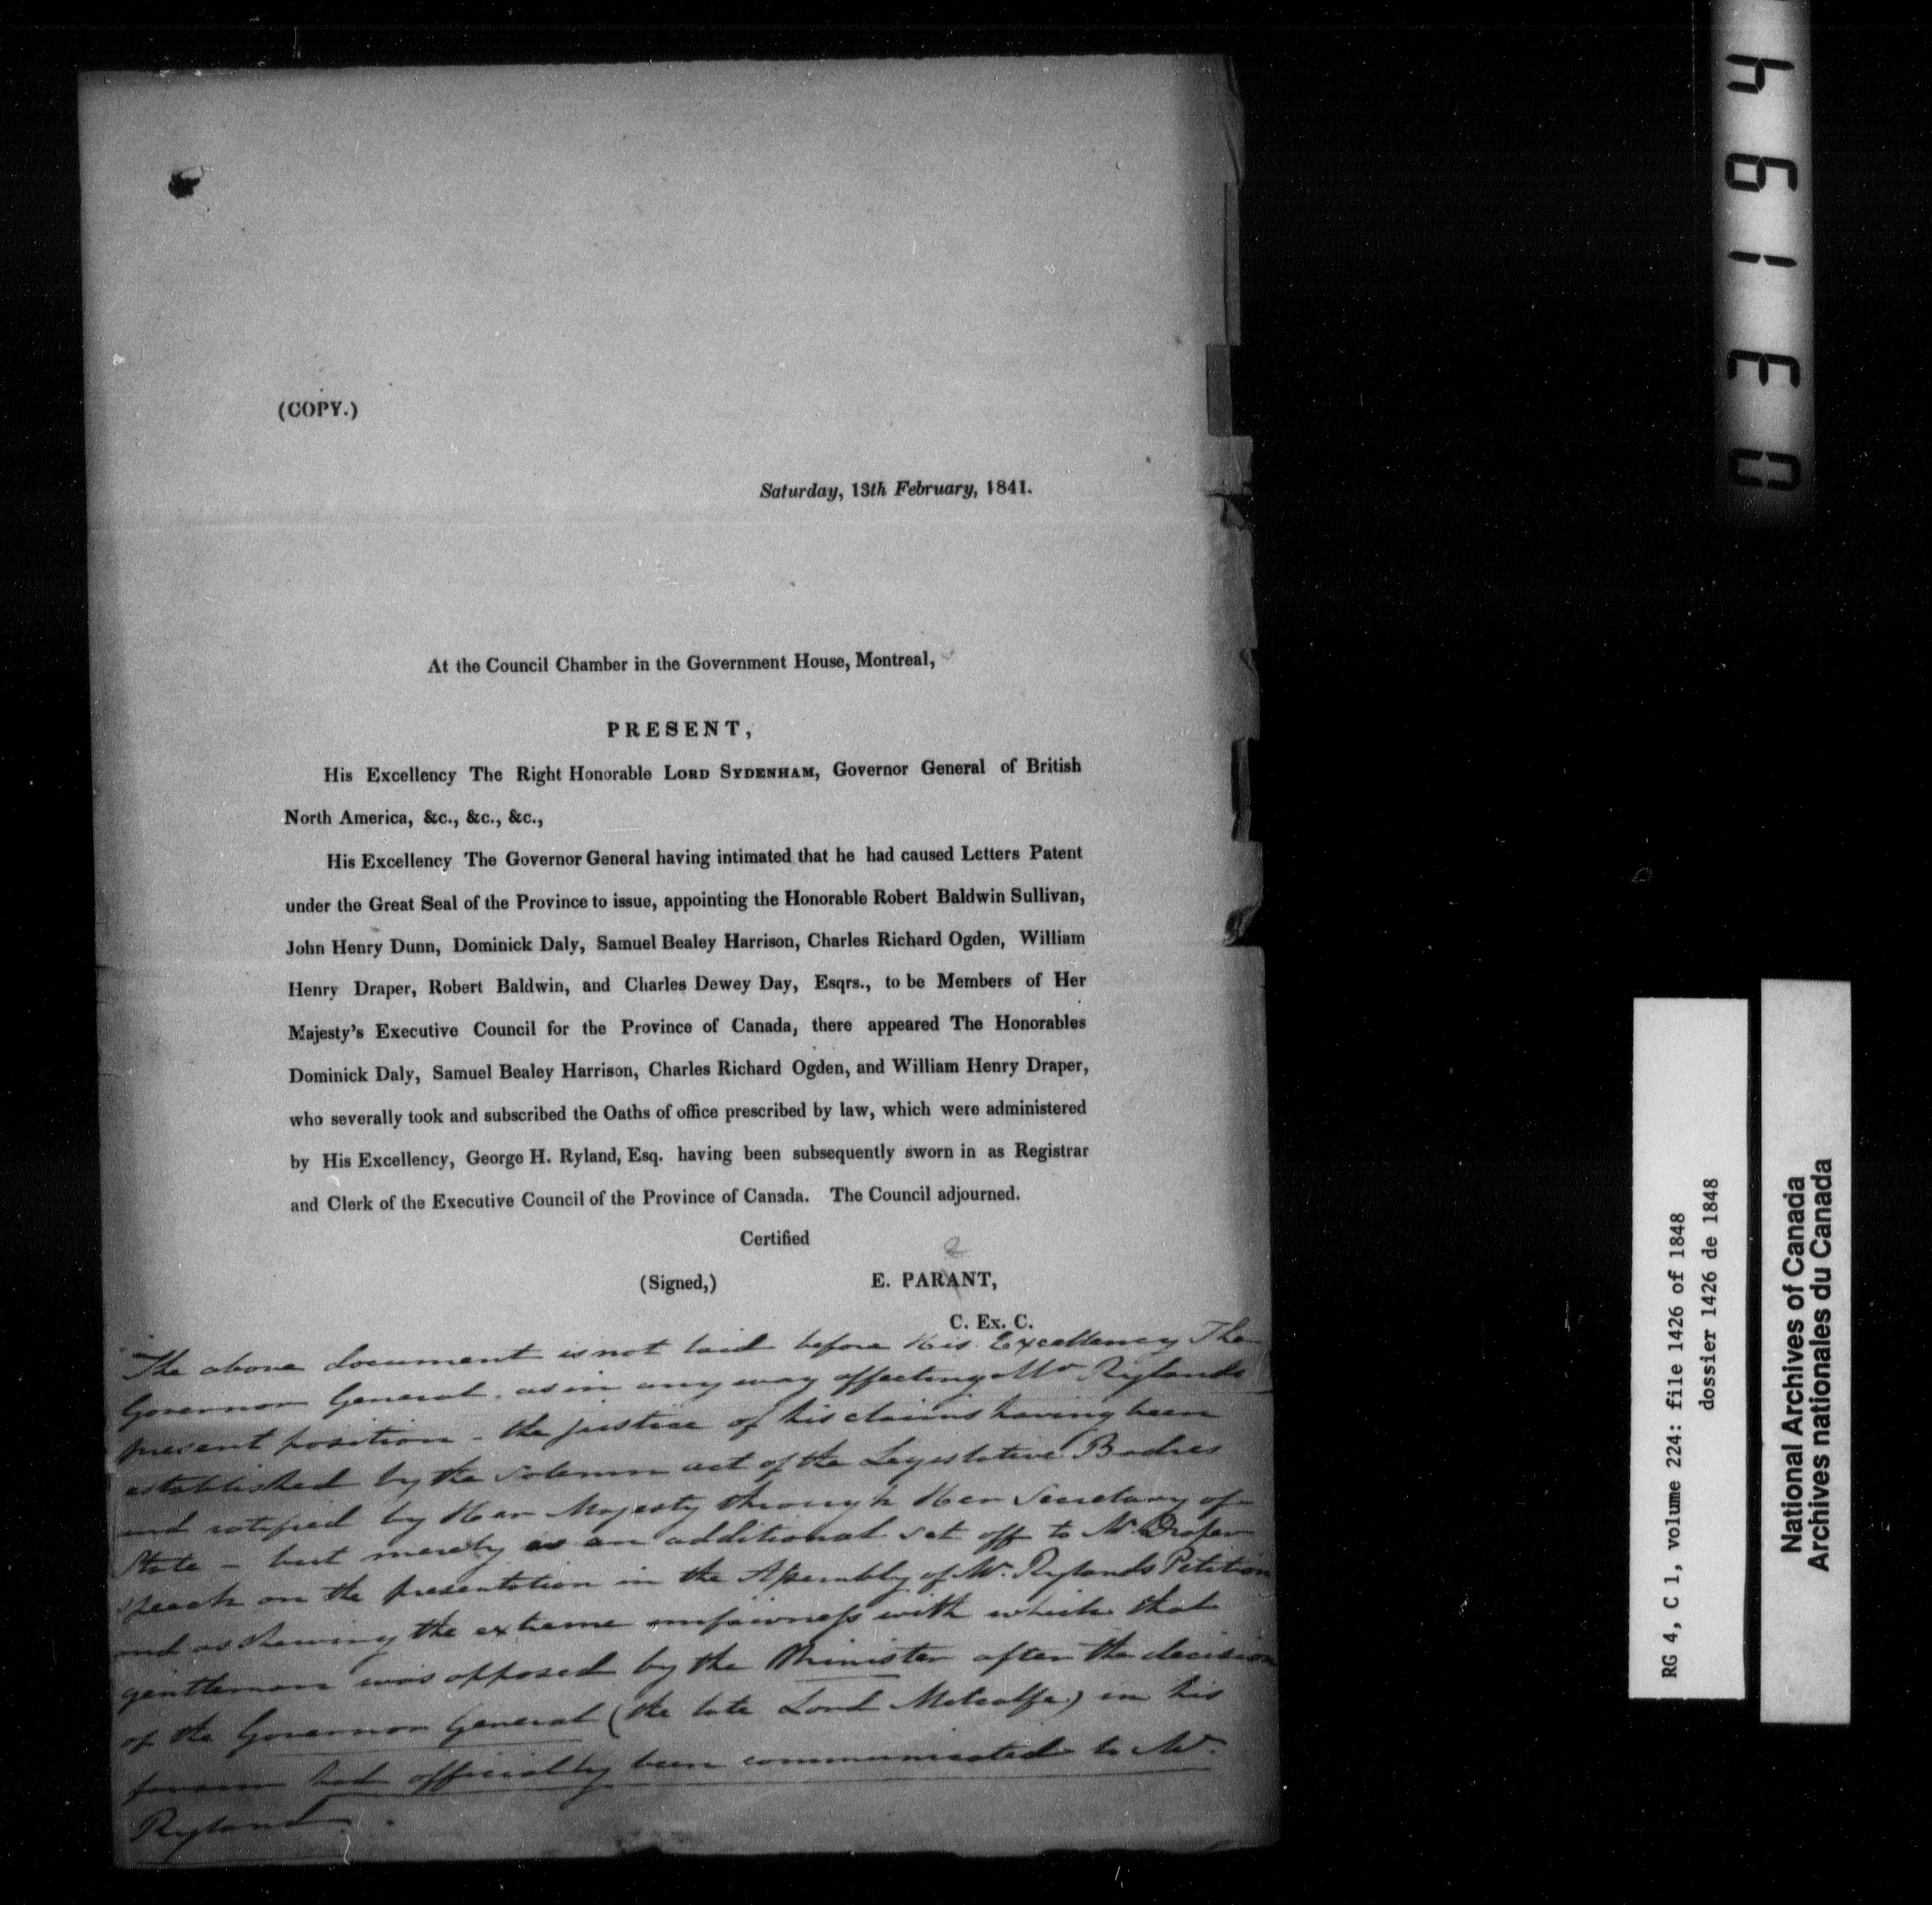 (COPY.)
Saturday, 13th February, 1841.
At the Council Chamber in the Government House, Montreal,
PRESENT,
His Excellency The Right Honorable LORD SYDENHAM, Governor General of British
North America, &c., &c., &c.,
His Excellency The Governor General having intimated that he had caused Letters Patent
under the Great Seal of the Province to issue, appointing the Honorable Robert Baldwin Sullivan,
John Henry Dunn, Dominick Daly, Samuel Bealey Harrison, Charles Richard Ogden, William
Henry Draper, Robert Baldwin, and Charles Dewey Day, Esqrs., to be Members of Her
Majesty's Executive Council for the Province of Canada, there appeared The Honorables
Dominick Daly, Samuel Bealey Harrison, Charles Richard Ogden, and William Henry Draper,
who severally took and subscribed the Oaths of office prescribed by law, which were administered
by His Excellency, George H. Ryland, Esq. having been subsequently sworn in as Registrar
and Clerk of the Executive Council of the Province of Canada. The Council adjourned.
Certified
e
(Signed,) E. PARANT,
C. Ex. C.
The above document is not laid before His Excellency The
Governor General. as in any way affecting Mr Rylands
present position - the justice of his claims having been
established by the solemn act of the Legislative Bodies
and ratified by Her Majesty through Her Secretary of
State - but merely as an additional set off to Mr. Draper
speech on the presentation in the Assembly of Mr. Rylands Petition
and as shewing the extreme unfairness with which that
gentleman was opposed by the Minister after the decision
of the Governor General (the late Lord Metcalfe) in his
favour had officially been communicated to Mr.
Ryland.
03194
RG 4, C 1, volume 224: file 1426 of 1848
dossier 1426 de 1848
National Archives of Canada
Archives nationales du Canada